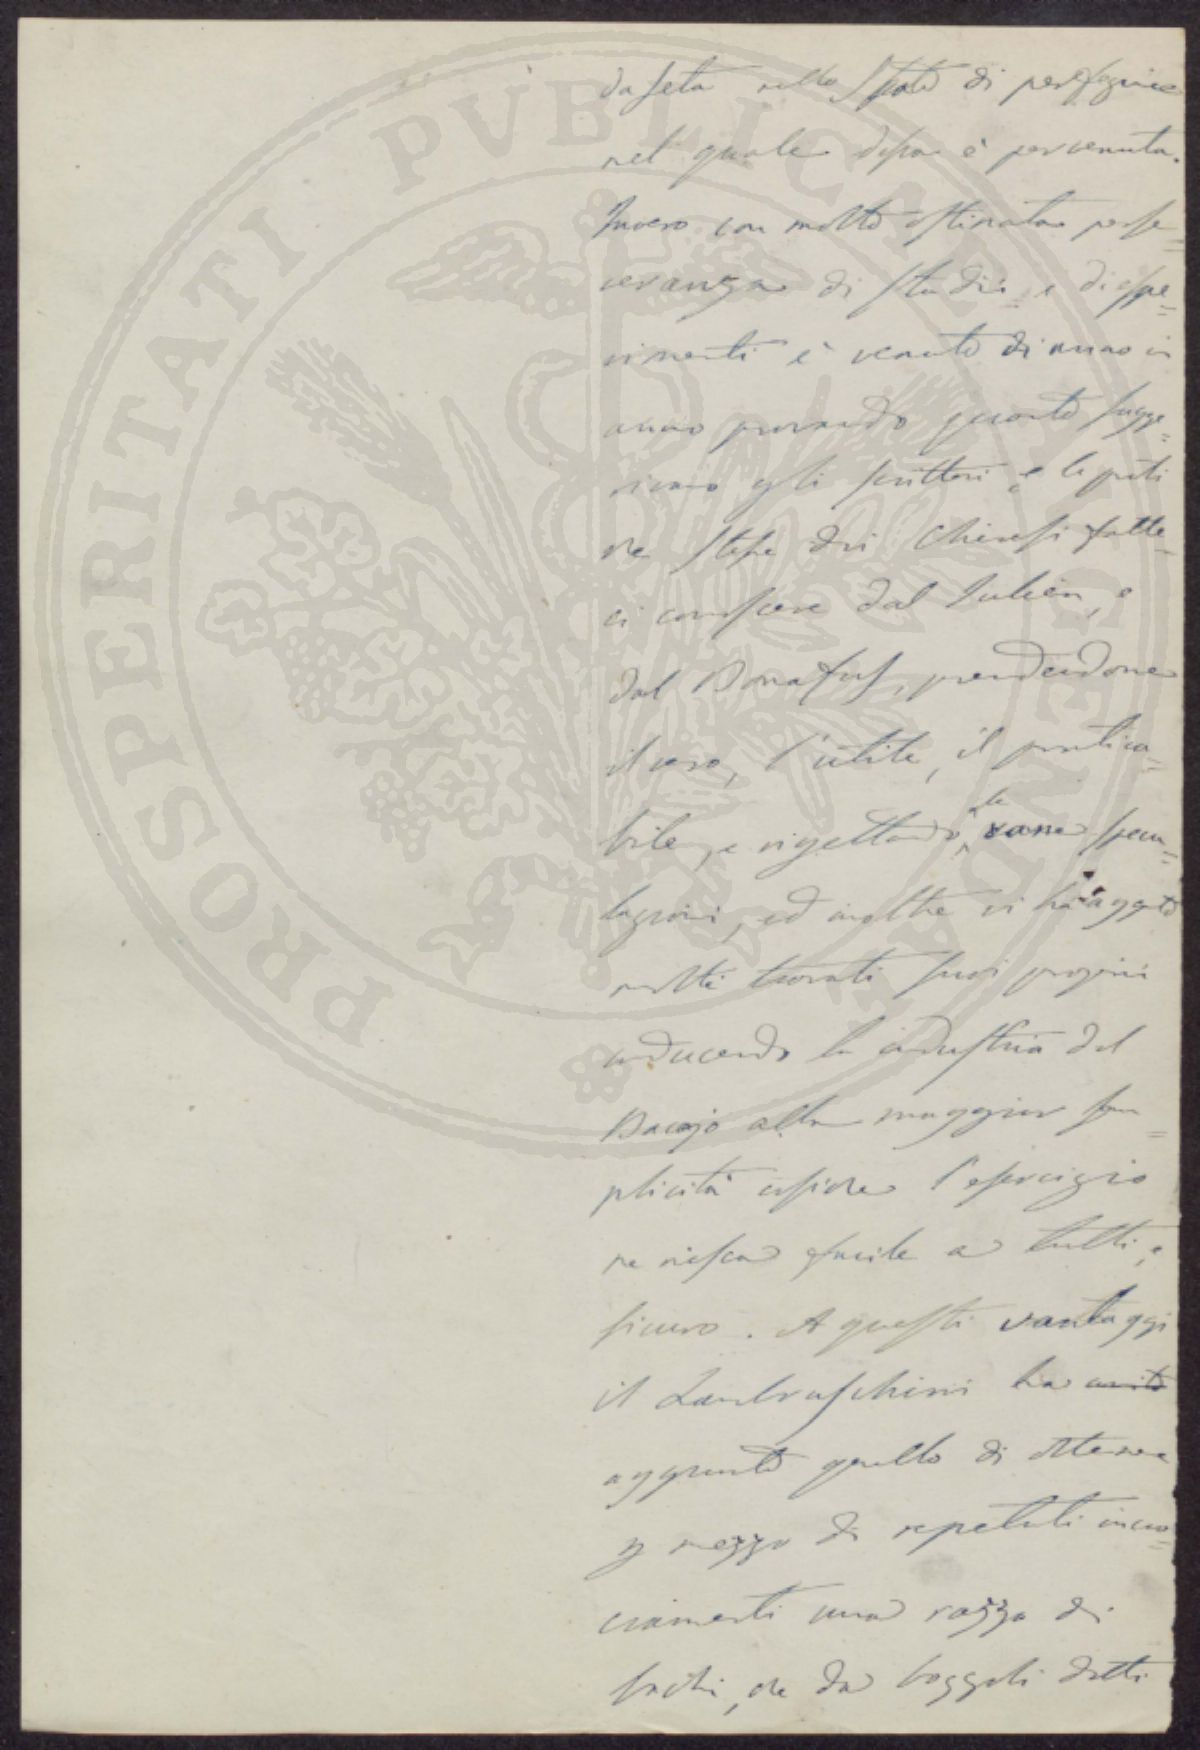 da seta nello stato di perfezione
nel quale dessa è pervenuta.
Invero con molto ostinata perse=
veranza di studii e di espe=
rimenti è venuto di anno in
anno provando quanto sugge=
rivano gli scrittori e le prati
che stesse dei Chinesi fatte=
ci conoscere dal Julien, e
dal Bonafus, prendendone
il vero, l'utile, il pratica=
bile, e rigettando le vane specu=
lazioni, ed inoltre vi ha aggto
molti trovati suoi proprii
riducendo la industria del
Bacajo alla maggior sem=
plicità cosiche l'esercizio
ne riesca facile a tutti, e
sicuro. A questi vantaggi
il Lambruschini ha unito
aggiunto quello di ottenere
p mezzo di repetuti incro=
ciamenti una razza di
bachi, che da bozzoli detti
PROSPERITATI PVBLICAE AVGENDAE